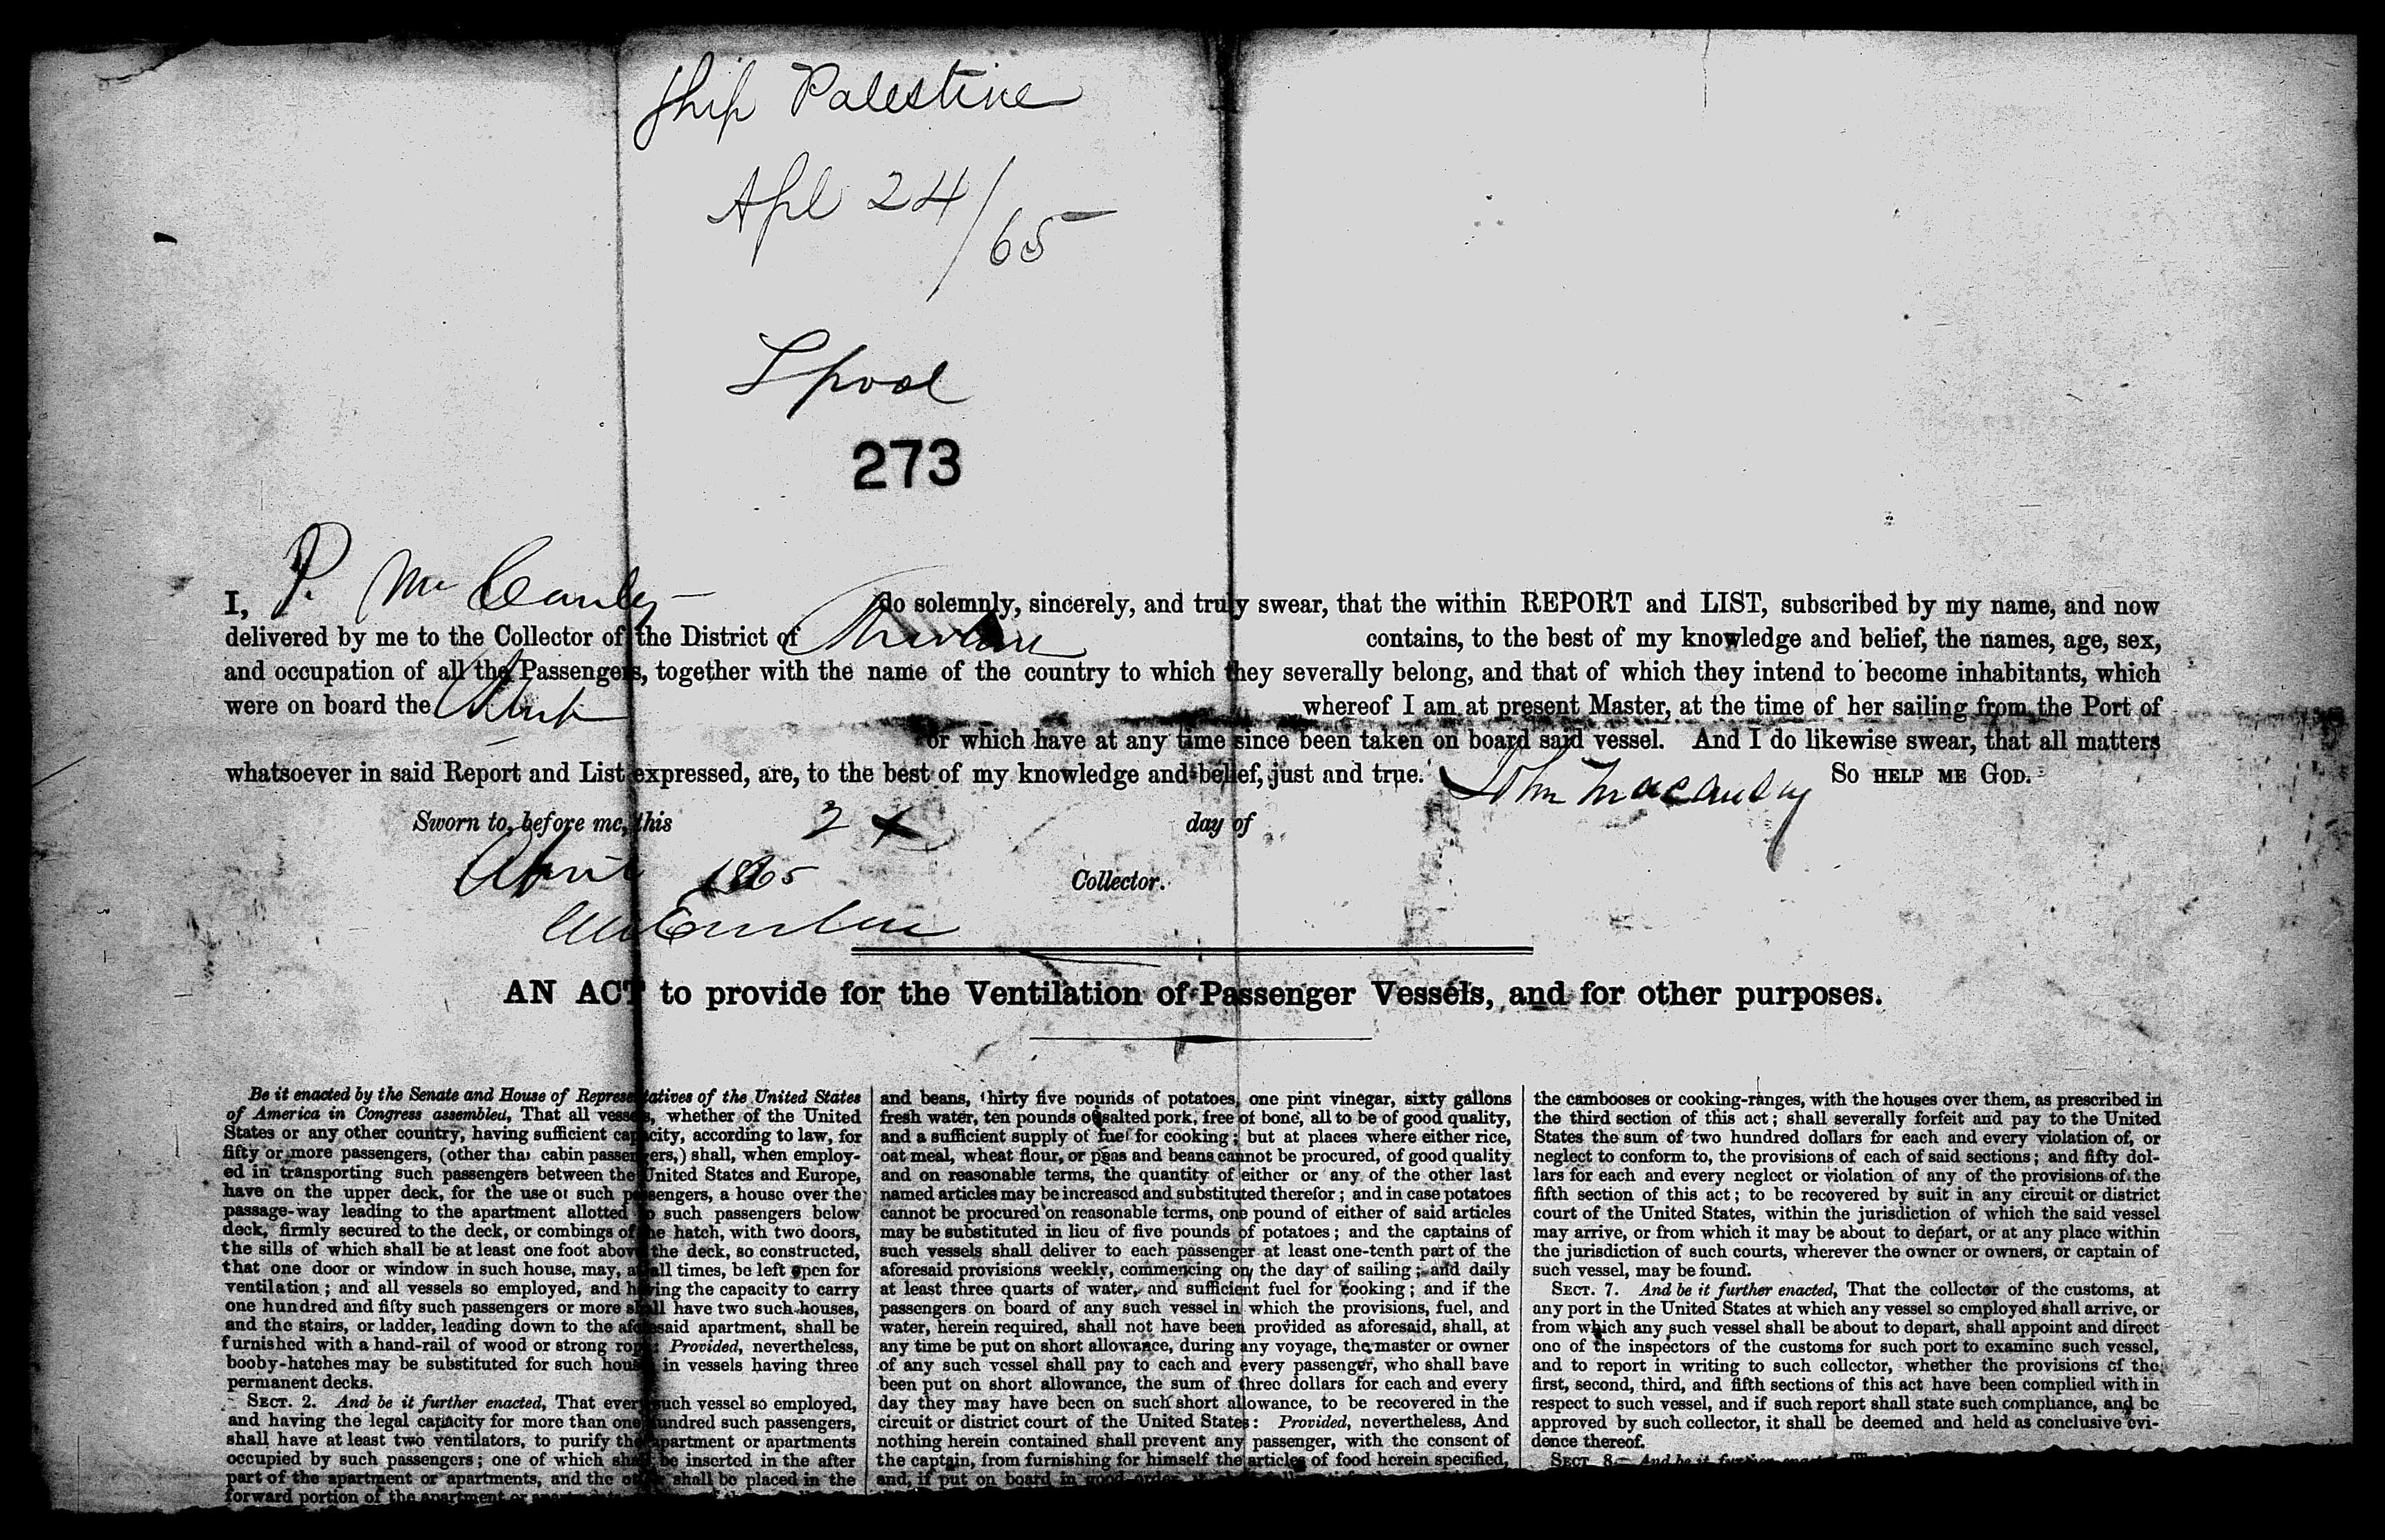 Ship Palestine
Apl 24/65
Lpool
273
I, P. Mc Cauley do solemnly, sincerely, and truly swear, that the within REPORT and LIST, subscribed by my name, and now
delivered by me to the Collector of the District of contains, to the best of my knowledge and belief, the names, age, sex,
and occupation of all the Passengers, together with the name of the country to which they severally belong, and that of which they intend to become inhabitants, which
were on board the whereof I am at present Master, at the time of her sailing from the Port of
or which have at any time since been taken on board said vessel. And I do likewise swear, that all matters
whatsoever in said Report and List expressed, are, to the best of my knowledge and belief, just and true. John Macaulay SO HELP ME GOD.
Sworn to, before me, this 2 day of
April 1865 Collector.
AN ACT to provide for the Ventilation of Passenger Vessels, and for other purposes.
Be it enacted by the Senate and House of Representatives of the United States
of America in Congress assembled, That all vessels, whether of the United
States or any other country, having sufficient capacity, according to law, for
fifty or more passengers, (other than cabin passengers,) shall, when employ-
ed in transporting such passengers between the United States and Europe,
have on the upper deck, for the use of such passengers, a house over the
passage-way leading to the apartment allotted to such passengers below
deck, firmly secured to the deck, or combings of the hatch, with two doors,
the sills of which shall be at least one foot above the deck, so constructed,
that one door or window in such house, may, at all times, be left open for
ventilation; and all vessels so employed, and having the capacity to carry
one hundred and fifty such passengers or more shall have two such houses,
and the stairs, or ladder, leading down to the aforesaid apartment, shall be
furnished with a hand-rail of wood or strong rope: Provided, nevertheless,
booby-hatches may be substituted for such house in vessels having three
permanent decks.
SECT. 2. And be it further enacted, That every such vessel so employed,
and having the legal capacity for more than one hundred such passengers,
shall have at least two ventilators, to purify the apartment or apartments
occupied by such passengers; one of which shall be inserted in the after
part of the apartment or apartments, and the other shall be placed in the
forward portion of the apartment or
and beans, thirty five pounds of potatoes, one pint vinegar, sixty gallons
fresh water, ten pounds of salted pork, free of bone, all to be of good quality,
and a sufficient supply of fuel for cooking; but at places where either rice,
oat meal, wheat flour, or peas and beans cannot be procured, of good quality
and on reasonable terms, the quantity of either or any of the other last
named articles may be increased and substituted therefor; and in case potatoes
cannot be procured on reasonable terms, one pound of either of said articles
may be substituted in lieu of five pounds of potatoes; and the captains of
such vessels shall deliver to each passenger at least one-tenth part of the
aforesaid provisions weekly, commencing on the day of sailing; and daily
at least three quarts of water, and sufficient fuel for cooking; and if the
passengers on board of any such vessel in which the provisions, fuel, and
water, herein required, shall not have been provided as aforesaid, shall, at
any time be put on short allowance, during any voyage, the master or owner
of any such vessel shall pay to each and every passenger, who shall have
been put on short allowance, the sum of three dollars for each and every
day they may have been on such short allowance, to be recovered in the
circuit or district court of the United States: Provided, nevertheless, And
nothing herein contained shall prevent any passenger, with the consent of
the captain, from furnishing for himself the articles of food herein specified,
and, if put on board in good order,
the cambooses or cooking-ranges, with the houses over them, as prescribed in
the third section of this act; shall severally forfeit and pay to the United
States the sum of two hundred dollars for each and every violation of, or
neglect to conform to, the provisions of each of said sections; and fifty dol-
lars for each and every neglect or violation of any of the provisions of the
fifth section of this act; to be recovered by suit in any circuit or district
court of the United States, within the jurisdiction of which the said vessel
may arrive, or from which it may be about to depart, or at any place within
the jurisdiction of such courts, wherever the owner or owners, or captain of
such vessel, may be found.
SECT. 7. And be it further enacted, That the collector of the customs, at
any port in the United States at which any vessel so employed shall arrive, or
from which any such vessel shall be about to depart, shall appoint and direct
one of the inspectors of the customs for such port to examine such vessel,
and to report in writing to such collector, whether the provisions of the
first, second, third, and fifth sections of this act have been complied with in
respect to such vessel, and if such report shall state such compliance, and be
approved by such collector, it shall be deemed and held as conclusive evi-
dence thereof.
SECT. 8. And be it further enacted,